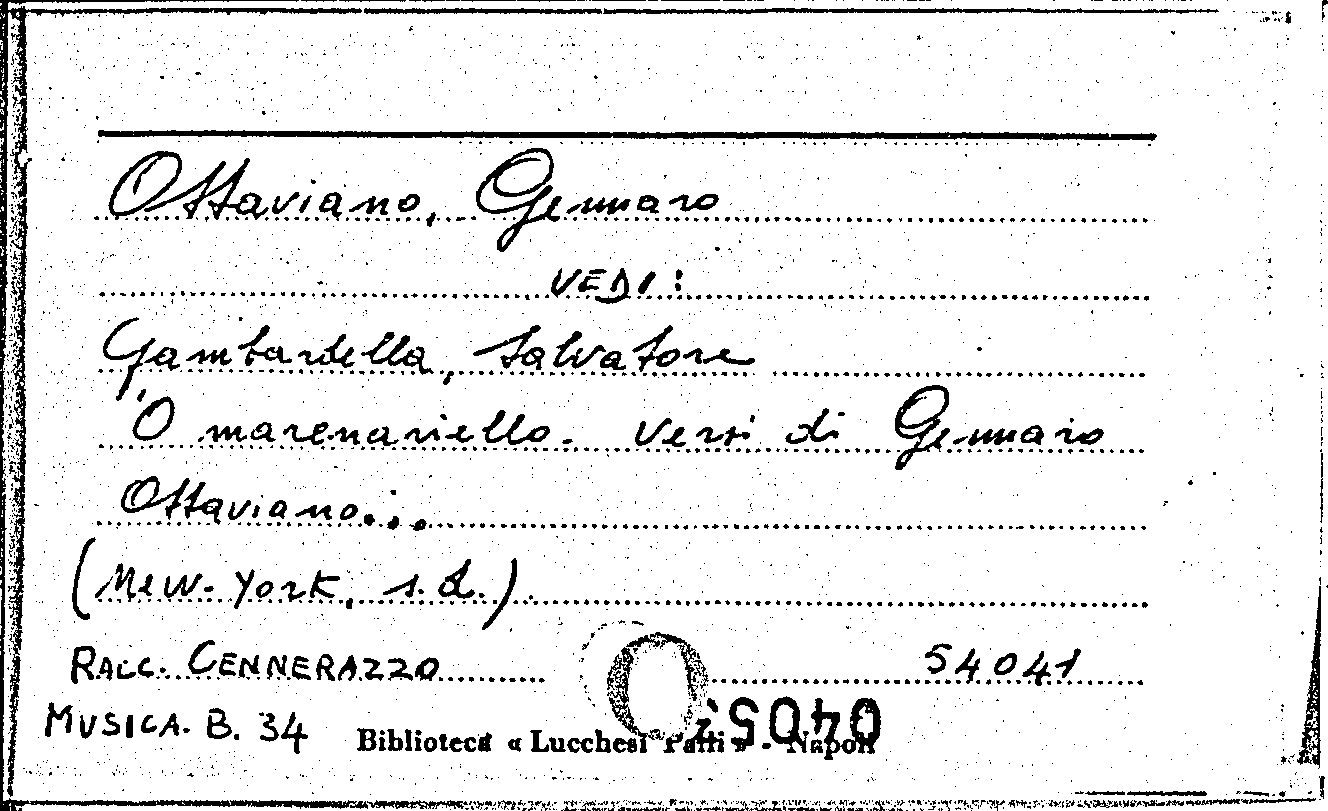 Ottaviano, Gennaro
VEDI:
Gambardella, Salvatore
'O marenariello. Versi di Gennaro
Ottaviano...
(New-York, s.d.)
RACC. CENNERAZZO 54041
MUSICA. B. 34
Biblioteca « Lucchesi Palli » - Napoli